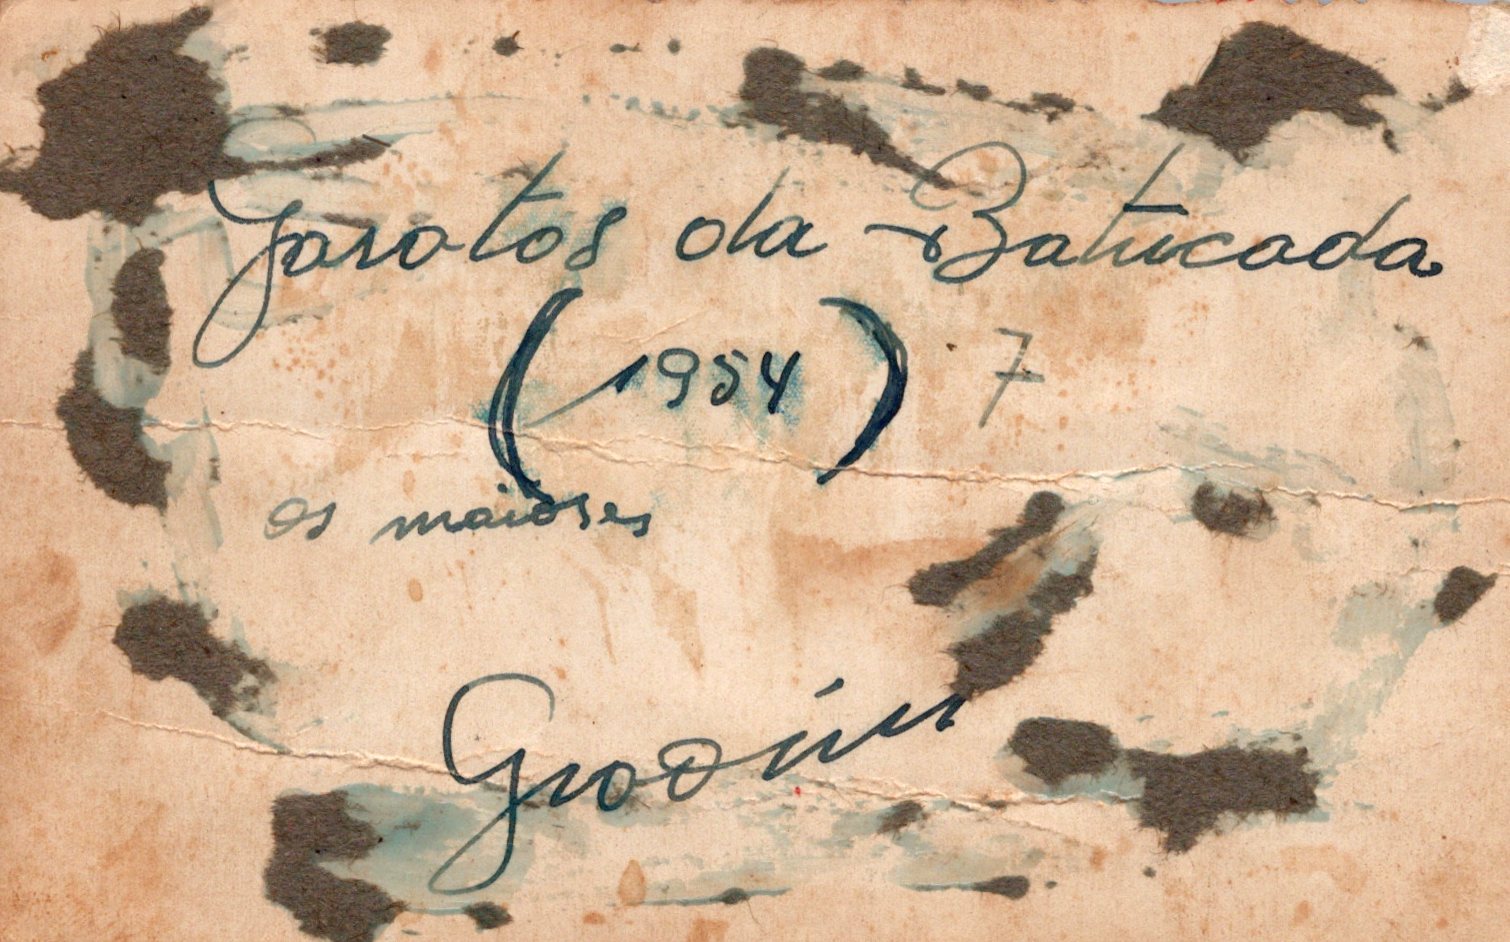 Garotos da Batucada
(1954) 7
os maiores